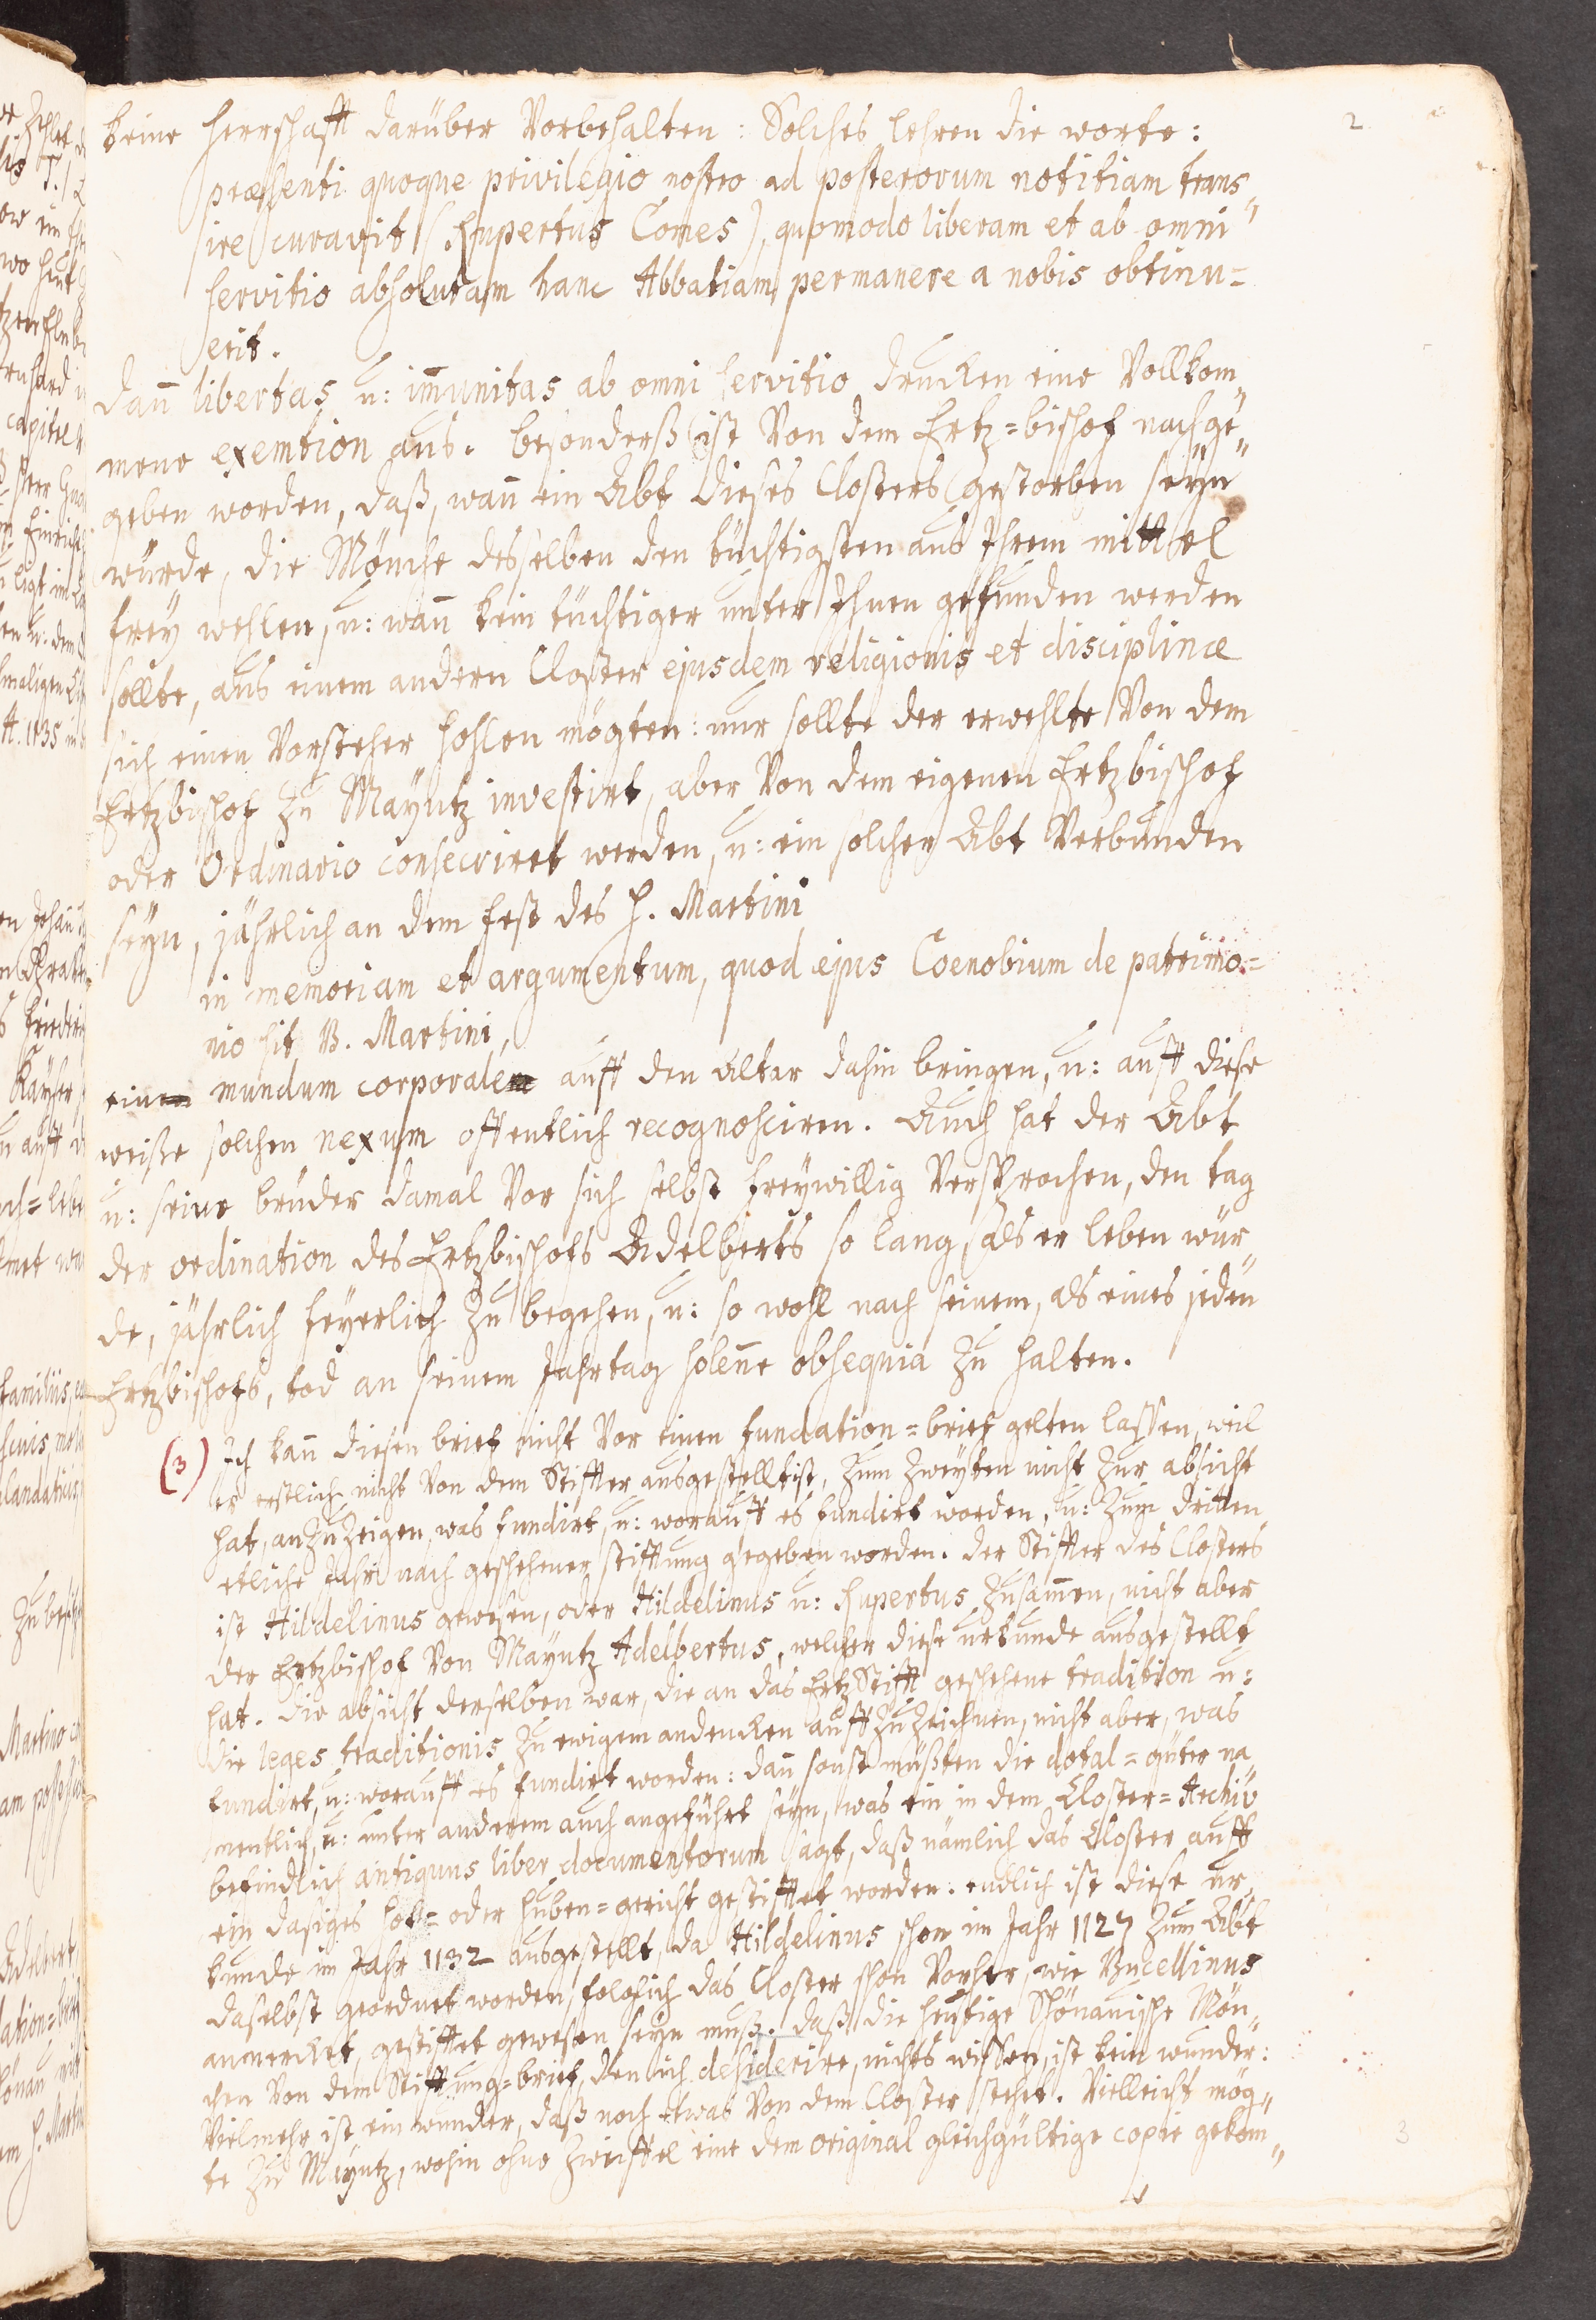 2
keine Herrschafft darüber Vorbehalten: Solches lehren die worte:
præsenti quoque privilegio nostro ad posterorum notitiam trans„
ire curavit (Rupertus Comes), quomodo liberam et ab omni
servitio absolutam hanc Abbatiam permanere a nobis obtinu=
erit.
dañ libertas u: im̃unitas ab omni servitio drucken eine Vollkom„
mene exemtion aus. besonderß ist Von dem Ertz=bischof nachge„
geben worden, daß, wañ ein Abt dieses Closters gestorben seyn
würde, die Mönche desselben den tüchtigsten aus Ihrem mittel
frey wehlen, u: wañ kein tüchtiger unter Ihnen gefunden werden
sollte, aus einem andern Closter ejusdem religionis et disciplinæ
sich einen Vorsteher hohlen mögten: nur sollte der erwehlte Von dem
Ertzbischof zu Mayntz investirt, aber Von dem eigenen Ertzbischof
oder Ordinario consecriret werden, u: ein solcher Abt Verbunden
seyn, jährlich an dem fest des H. Martini
in memoriam et argumentum, quod ejus Coenobium de patrimo=
nio sit B. Martini,
ein mundum corporale auff den Altar dahin bringen, u: auff diese
weiße solchen nexum offentlich recognosciren. Auch hat der Abt
u: seine brüder damal Vor sich selbst freywillig Versprochen, den tag
der ordination des Ertzbischofs Adelberts so lang, als er leben wür„
de, jährlich feyerlich zu begehen, u: so wohl nach seinem, als eines jeden
Ertzbischofs, tod an seinem Jahrtag soleñe obsequia zu halten.
(3) Ich kañ diesen brief nicht Vor einen fundation=brief gelten lassen, weil
er erstlich nicht Von dem Stiffter ausgestellt ist, zum zweyten nicht zur absicht
hat, anzuzeigen, was fundirt, u: worauff es fundirt worden, u: zum dritten
etliche Jahr nach geschehener stifftung gegeben worden. der Stiffter des Closters
ist Hildelinus gewesen, oder Hildelinus u: Rupertus zusam̃en, nicht aber
der Ertzbischof Von Mayntz Adelbertus, welcher diese urkunde ausgestellt
hat. die absicht derselben war, die an das Ertz Stifft geschehene tradition u:
die leges traditionis zu ewigem andencken auffzuzeichnen, nicht aber, was
fundirt, u: worauff es fundirt worden: dañ sonst müßten die dotal=güter na„
mentlich, u: unter anderem auch angeführt seyn, was ein in dem Closter=Archiv
befindlich antiquus liber documentorum sagt, daß nämlich das Closter auff
ein dasiges hof= oder huben=gericht gestifftet worden. endlich ist diese ur„
kunde im Jahr 1132 ausgestellt, da Hildelinus schon im Jahr 1127 zum Abt
daselbst geordnet worden, folglich das Closter schon Vorher, wie Bucellinus
anmercket, gestifftet gewesen seyn muß. daß die heutige Schönauische Mön„
chen Von dem Stifftung=brief, den ich desiderire, nichts wissen, ist kein wunder:
Vielmehr ist ein wunder, daß noch etwas Von dem Closter stehet. Vielleicht mög„
te zu Mayntz, wohin ohne zweiffel eine dem original gleichgültige copie gekom„
3